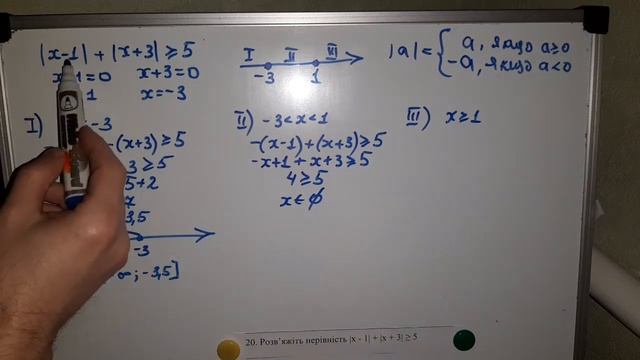 |x-1| + |x+3| ≥ 5
x-1=0 x+3=0
1 x=-3
I II III
-3 1
|a| = { a, якщо a≥0
-a, якщо a<0
I) -3
-(x+3) ≥ 5
3 ≥ 5
5+2
3,5
-3
∞; -3,5]
II) -3<x<1
-(x-1)+(x+3) ≥ 5
-x+1+x+3 ≥ 5
4 ≥ 5
x ∈ ∅
III) x ≥ 1
20. Розв’яжіть нерівність |x - 1| + |x + 3| ≥ 5